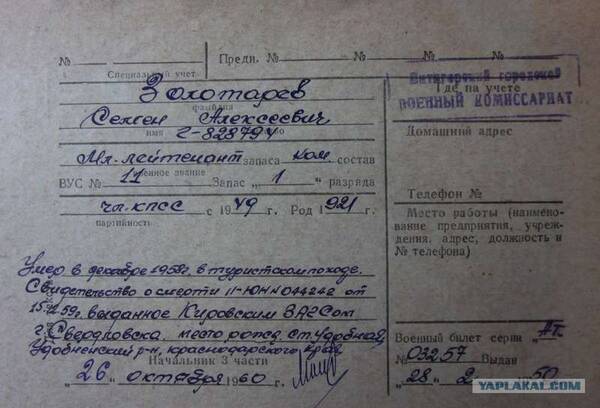 № Предн. № № №
Специальный учет
Золотарев
фамилия
Семен Алексеевич
имя Г-828794
Мл. лейтенант запаса ком состав
военное звание
ВУС № 11 Запас „1" разряда
чл. КПСС с 1949 г. Род 1921 г.
партийность
Умер в декабре 1958г. в туристском походе.
Свидетельство о смерти II-ЮН №044242 от
59г. выданное Кировским ЗАГСом
г. Свердловска. место рожд. ст. Удобная,
Удобненский р-н, Краснодарского края
Начальник 3 части
„26" октября 1960 г.
Пятигорский городской
Где на учете
ВОЕННЫЙ КОМИССАРИАТ
Домашний адрес
Телефон №
Место работы (наимено-
вание предприятия, учреж-
дения, адрес, должность и
№ телефона)
Военный билет серии
№ 03257 Выдан
„28" 2 50
YAPLAKAL.COM